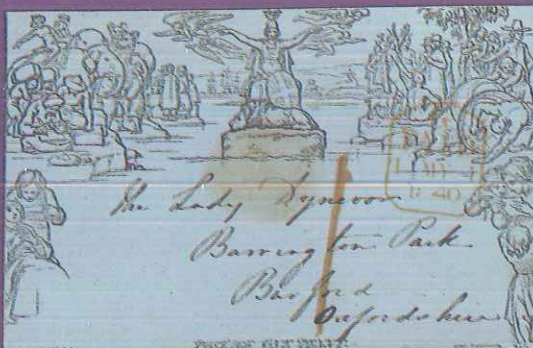 PAID
1 MY 1
1840
The Lady Dynevor
Barrington Park
Burford
Oxfordshire
POSTAGE